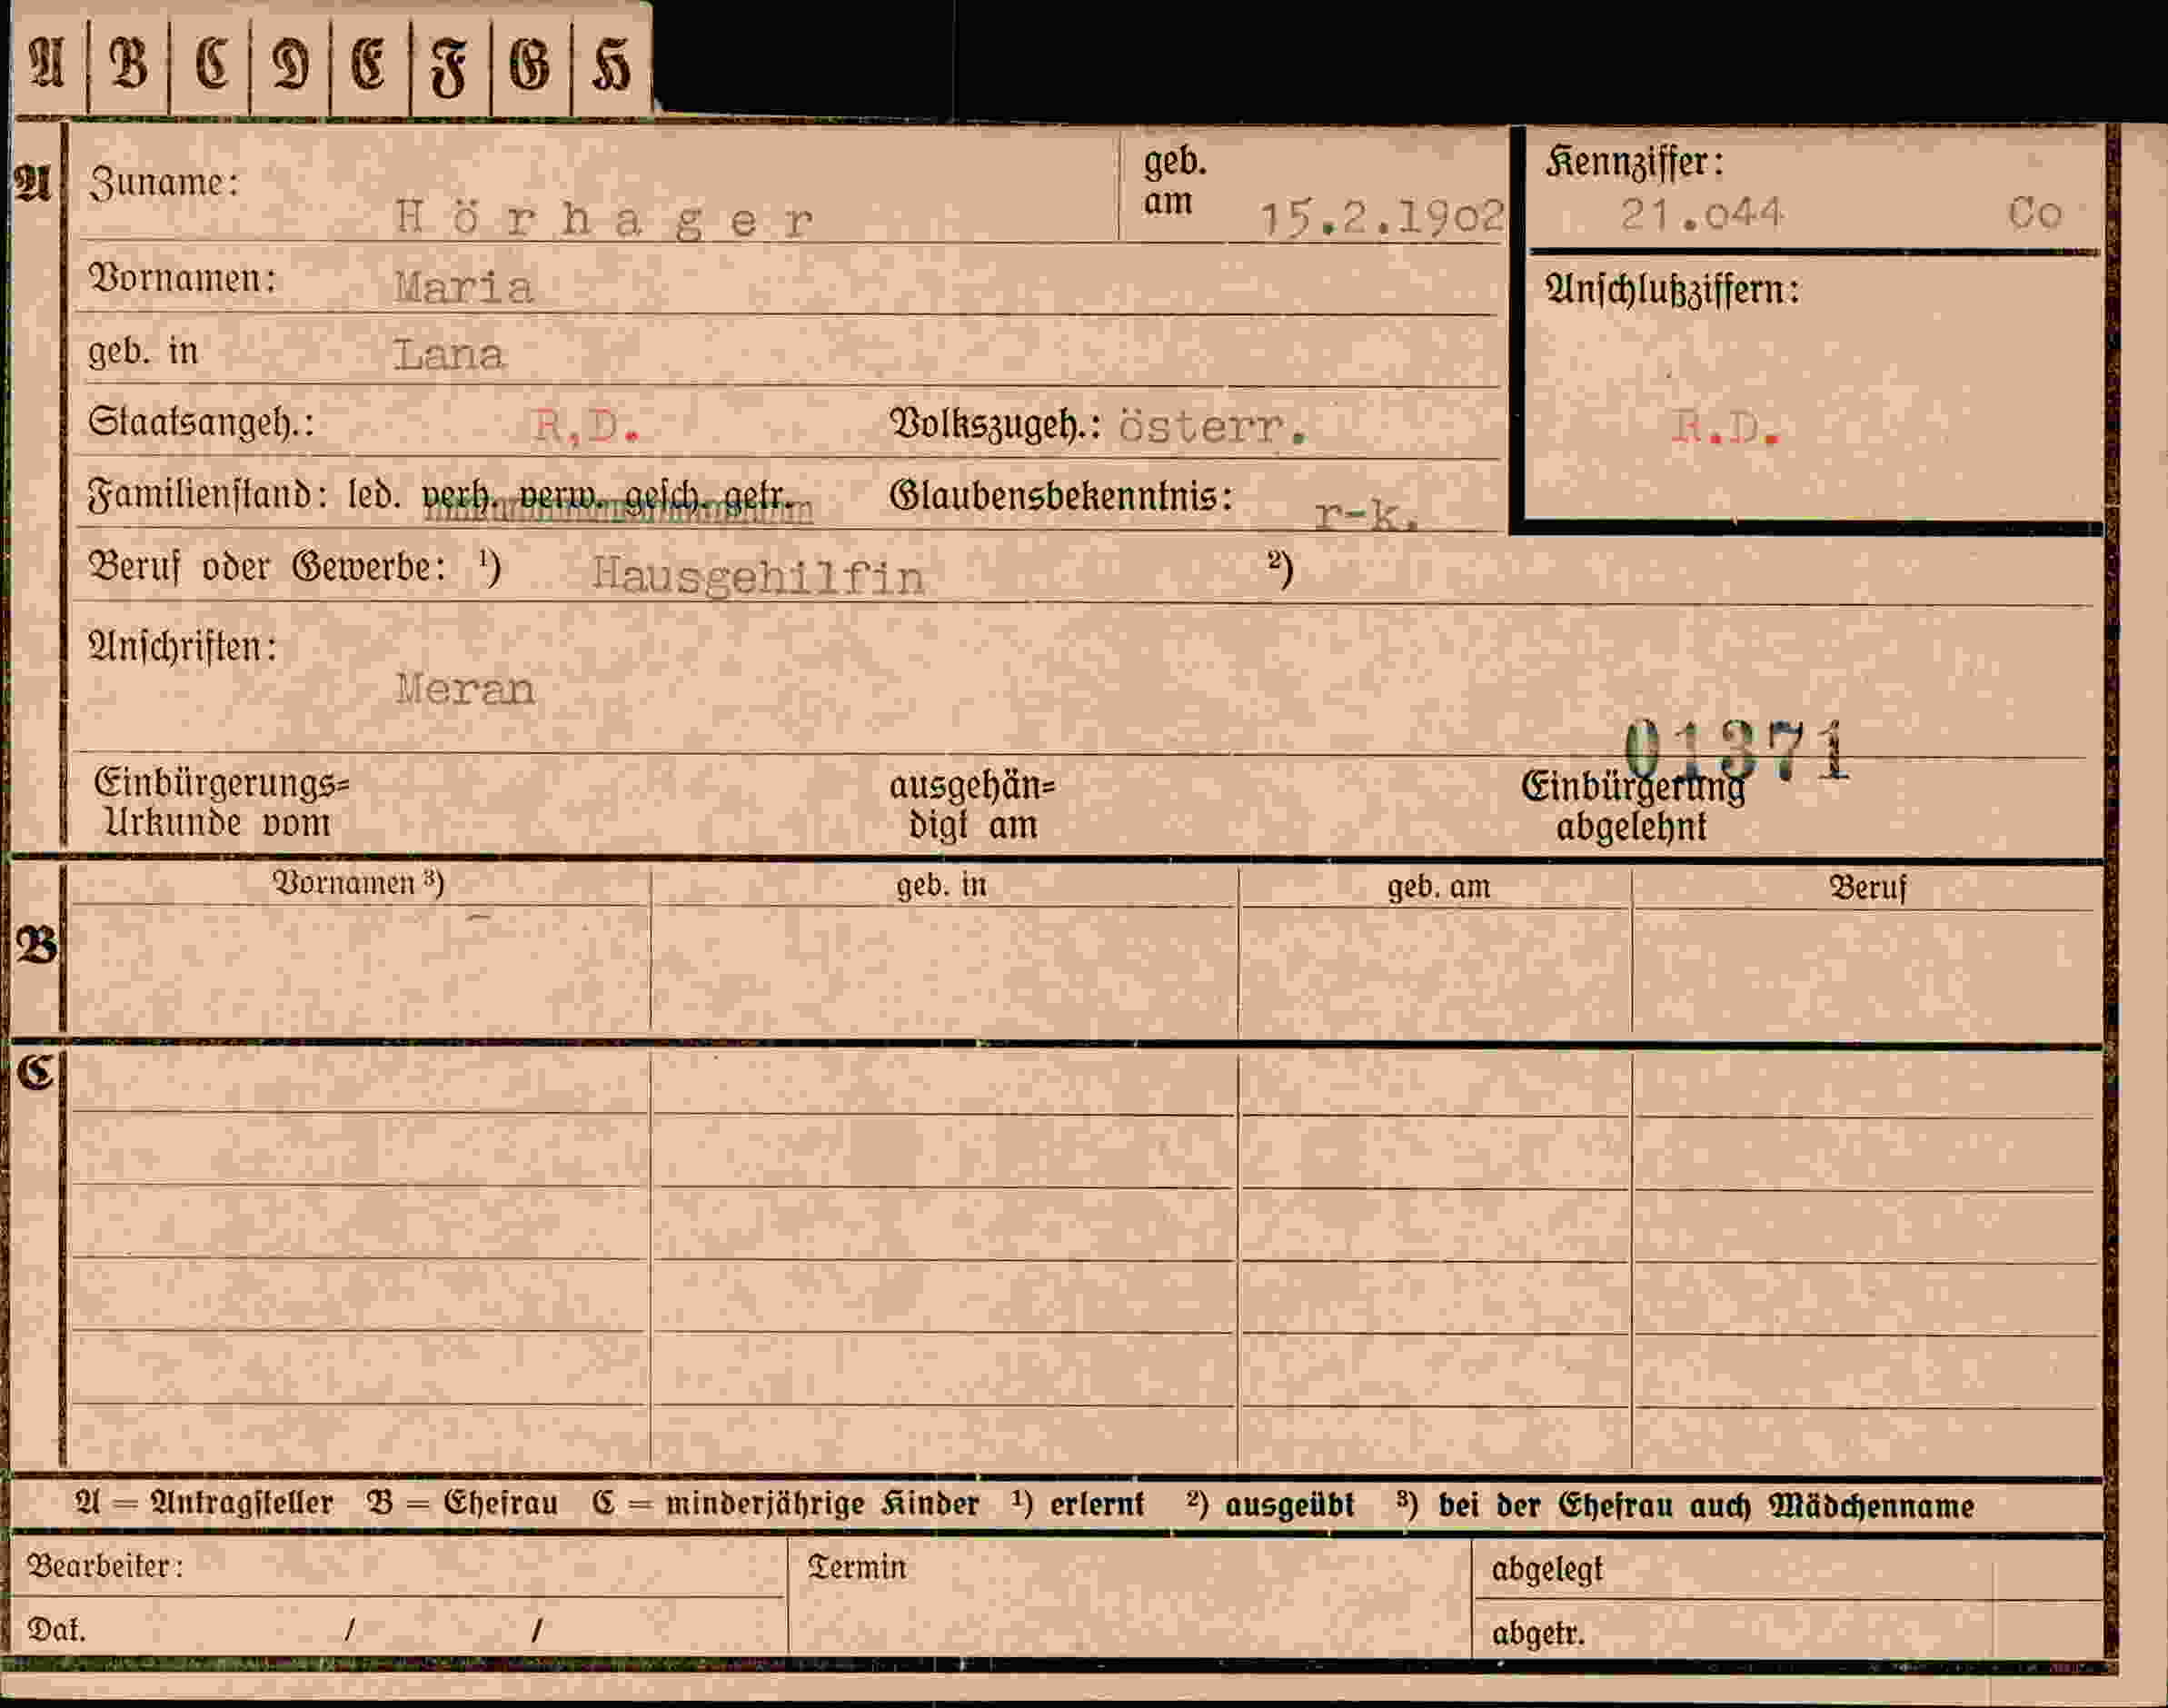 A B C D E F G H
A Zuname: Hörhager geb. am 15.2.1902 Kennziffer: 21.o44 Co
Vornamen: Maria Anschlußziffern:
geb. in Lana
Staatsangeh.: R.D. Volkszugeh.: österr. R.D.
Familienstand: led. verh. verw. gesch. getr. Glaubensbekenntnis: r-k.
Beruf oder Gewerbe: ¹) Hausgehilfin ²)
Anschriften:
Meran
01371
Einbürgerungs= ausgehän= Einbürgerung
Urkunde vom digt am abgelehnt
Vornamen ³) geb. in geb. am Beruf
B
C
A = Antragsteller B = Ehefrau C = minderjährige Kinder ¹) erlernt ²) ausgeübt ³) bei der Ehefrau auch Mädchenname
Bearbeiter: Termin abgelegt
Dat. / / abgetr.